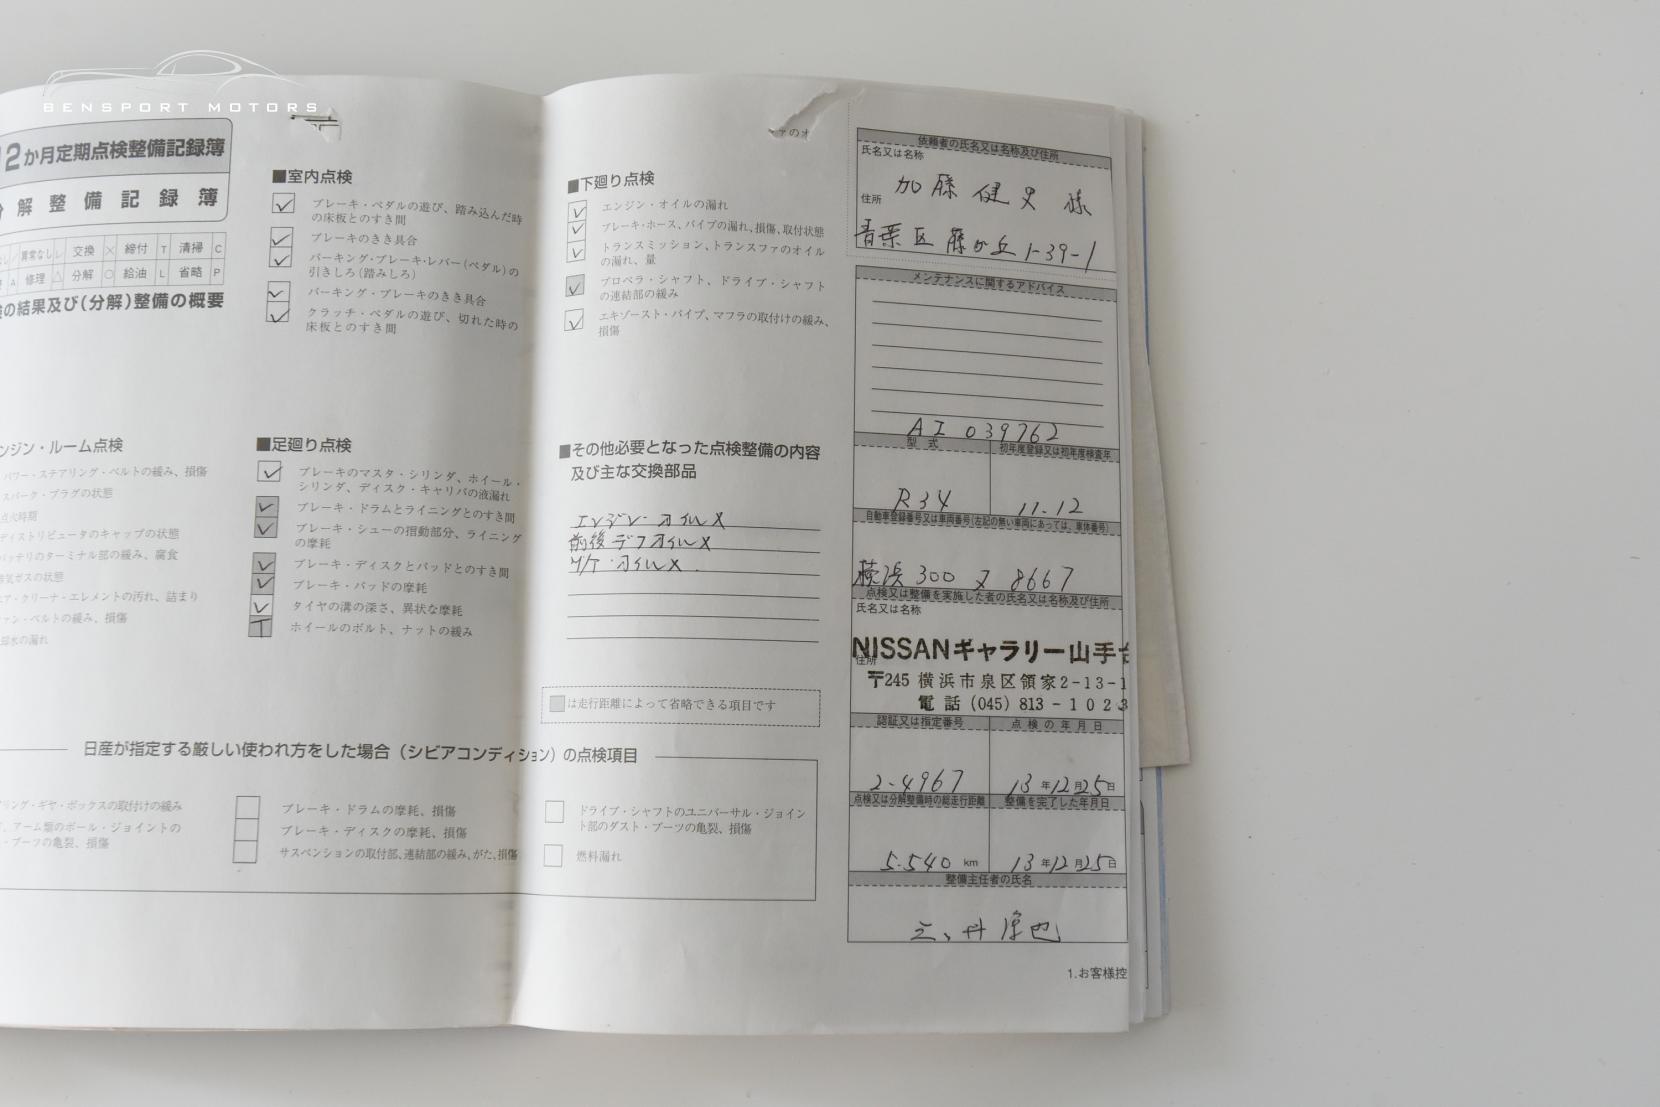 BENSPORT MOTORS
2か月定期点検整備記録簿
解整備記録簿
異常なし レ 交換 × 締付 T 清掃 C
A 修理 △ 分解 ○ 給油 L 省略 P
の結果及び(分解)整備の概要
■室内点検
ブレーキ・ペダルの遊び、踏み込んだ時
の床板とのすき間
ブレーキのきき具合
パーキング・ブレーキ・レバー(ペダル)の
引きしろ(踏みしろ)
パーキング・ブレーキのきき具合
クラッチ・ペダルの遊び、切れた時の
床板とのすき間
ンジン・ルーム点検
パワー・ステアリング・ベルトの緩み、損傷
スパーク・プラグの状態
点火時期
ディストリビュータのキャップの状態
バッテリのターミナル部の緩み、腐食
気ガスの状態
ア・クリーナ・エレメントの汚れ、詰まり
ァン・ベルトの緩み、損傷
却水の漏れ
■足廻り点検
ブレーキのマスタ・シリンダ、ホイール・
シリンダ、ディスク・キャリパの液漏れ
ブレーキ・ドラムとライニングとのすき間
ブレーキ・シューの摺動部分、ライニング
の摩耗
ブレーキ・ディスクとパッドとのすき間
ブレーキ・パッドの摩耗
タイヤの溝の深さ、異状な摩耗
T ホイールのボルト、ナットの緩み
■下廻り点検
エンジン・オイルの漏れ
ブレーキ・ホース、パイプの漏れ、損傷、取付状態
トランスミッション、トランスファのオイル
の漏れ、量
プロペラ・シャフト、ドライブ・シャフト
の連結部の緩み
エキゾースト・パイプ、マフラの取付けの緩み、
損傷
■その他必要となった点検整備の内容
及び主な交換部品
エンジンオイル×
前後デフオイル×
M/Tオイル×
は走行距離によって省略できる項目です
日産が指定する厳しい使われ方をした場合(シビアコンディション)の点検項目
リング・ギヤ・ボックスの取付けの緩み
アーム類のボール・ジョイントの
・ブーツの亀裂、損傷
ブレーキ・ドラムの摩耗、損傷
ブレーキ・ディスクの摩耗、損傷
サスペンションの取付部、連結部の緩み、がた、損傷
ドライブ・シャフトのユニバーサル・ジョイン
ト部のダスト・ブーツの亀裂、損傷
燃料漏れ
ァのオ
依頼者の氏名又は名称及び住所
氏名又は名称
加藤健史様
住所
青葉区藤が丘1-39-1
メンテナンスに関するアドバイス
AI 039762
型式 初年度登録又は初年度検査年
R34 11.12
自動車登録番号又は車両番号(左記の無い車両にあっては、車体番号)
横浜300 ヌ 8667
点検又は整備を実施した者の氏名又は名称及び住所
氏名又は名称
NISSANギャラリー山手台
住所
〒245 横浜市泉区領家2-13-1
電話(045)813-1023
認証又は指定番号 点検の年月日
2-4967 13年12月25日
点検又は分解整備時の総走行距離 整備を完了した年月日
5.540 km 13年12月25日
整備主任者の氏名
1.お客様控